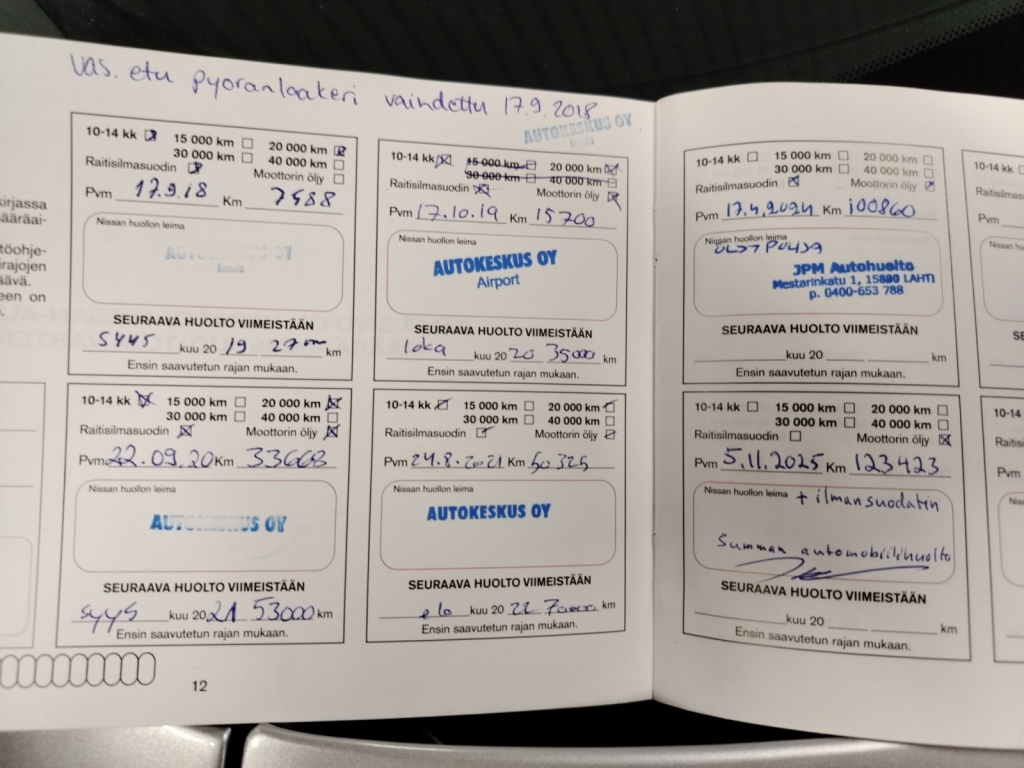 vas. etu pyöränlaakeri vaihdettu 17.9.2018
AUTOKESKUS OY
10-14 kk 15 000 km 20 000 km
30 000 km 40 000 km
Raitisilmasuodin Moottorin öljy
Pvm 17.9.18 Km 7588
Nissan huollon leima
AUTOKESKUS OY
SEURAAVA HUOLTO VIIMEISTÄÄN
SYYS kuu 20 19 27 km
Ensin saavutetun rajan mukaan.
10-14 kk 15 000 km 20 000 km
30 000 km 40 000 km
Raitisilmasuodin Moottorin öljy
Pvm 17.10.19 Km 15700
Nissan huollon leima
AUTOKESKUS OY
Airport
SEURAAVA HUOLTO VIIMEISTÄÄN
loka kuu 20 20 35000 km
Ensin saavutetun rajan mukaan.
10-14 kk 15 000 km 20 000 km
30 000 km 40 000 km
Raitisilmasuodin Moottorin öljy
Pvm 22.09.20 Km 33668
Nissan huollon leima
AUTOKESKUS OY
SEURAAVA HUOLTO VIIMEISTÄÄN
syys kuu 20 21 53000 km
Ensin saavutetun rajan mukaan.
10-14 kk 15 000 km 20 000 km
30 000 km 40 000 km
Raitisilmasuodin Moottorin öljy
Pvm 24.8.2021 Km 50325
Nissan huollon leima
AUTOKESKUS OY
SEURAAVA HUOLTO VIIMEISTÄÄN
elo kuu 20 22 70000 km
Ensin saavutetun rajan mukaan.
12
10-14 kk 15 000 km 20 000 km
30 000 km 40 000 km
Raitisilmasuodin Moottorin öljy
Pvm 17.4.2024 Km 100860
Nissan huollon leima
JPM Autohuolto
Mestarinkatu 1, 15880 LAHTI
p. 0400-653 788
SEURAAVA HUOLTO VIIMEISTÄÄN
kuu 20 km
Ensin saavutetun rajan mukaan.
10-14 kk 15 000 km 20 000 km
30 000 km 40 000 km
Raitisilmasuodin Moottorin öljy
Pvm 5.11.2025 Km 123423
Nissan huollon leima + ilmansuodatin
Summan automobiilihuolto
SEURAAVA HUOLTO VIIMEISTÄÄN
kuu 20 km
Ensin saavutetun rajan mukaan.